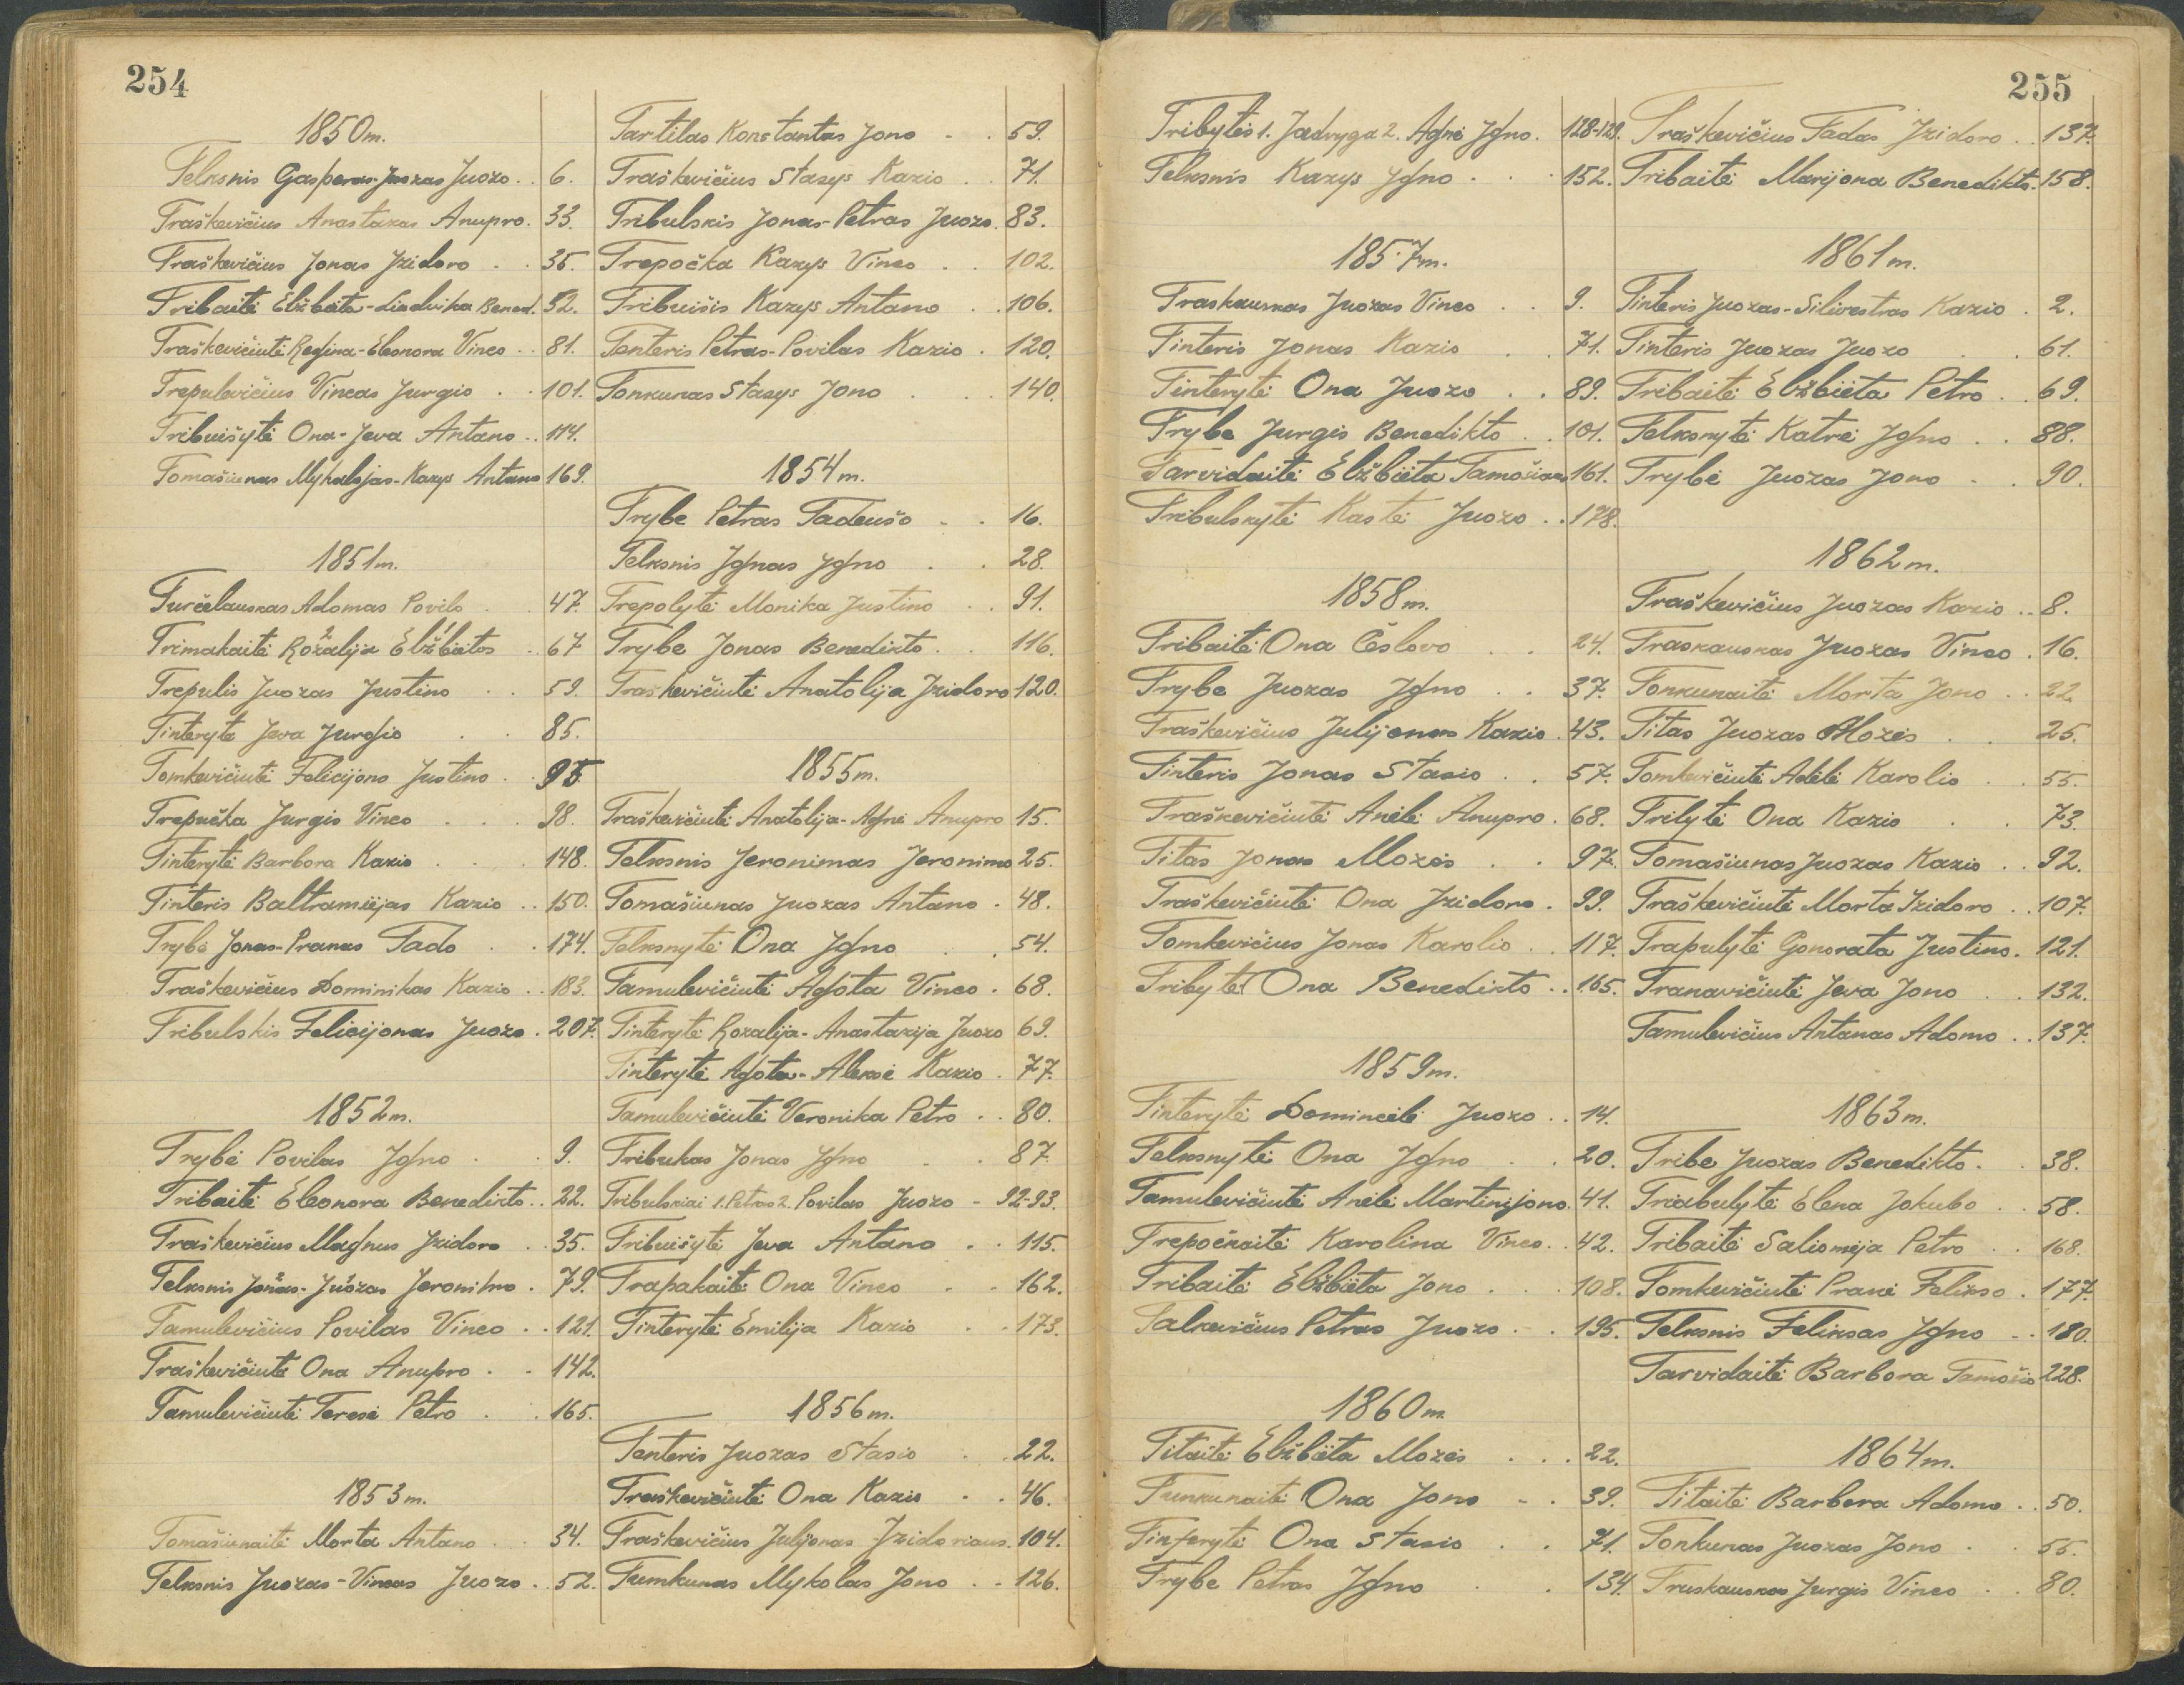 254
1850m.
Telksnis Gasparas-Juozas Juozo . . 6.
Traškevičius Anastazas Anupro. 33.
Traškevičius Jonas Izidoro . . 35.
Tribaitė Elžbieta-Liudvika Bened. 52.
Traškevičiutė Regina-Eleonora Vinco . . 81.
Trepulevičius Vincas Jurgio . . 101.
Tribuišytė Ona-Jeva Antano . . 114.
Tomašiunas Mykalojas-Kazys Antano 169.
1851m.
Turčelauskas Adomas Povilo . . 47.
Trimakaitė Rožalija 2 Elžbietos 1 . . 67
Trepulis Juozas Justino . . 59.
Tinterytė Jeva Jurgio . . 85.
Tomkevičiutė Felicijona Justino . . 95
Trepučka Jurgis Vinco . . . 98.
Tinterytė Barbora Kazio . . . 148.
Tinteris Baltramiejas Kazio . . 150.
Trybė Jonas-Pranas Tado . . 174.
Traškevičius Dominikas Kazio . . 183.
Tribulskis Felicijonas Juozo . 207.
1852m.
Trybė Povilas Igno . . 9.
Tribaitė Eleonora Benedikto . . 22.
Traškevičius Magnus Izidoro . . 35.
Telksnis Jonas 2-Juozas 1 Jeronimo . 79.
Tamulevičius Povilas Vinco . . 121.
Traškevičiutė Ona Anupro . . 142.
Tamulevičiutė Teresė Petro . . 165.
1853m.
Tomašiunaitė Morta Antano . . 34.
Telksnis Juozas-Vincas Juozo . 52.
Tartilas Konstantas Jono - . 59.
Traškevičius Stasys Kazio . . 71.
Tribulskis Jonas-Petras Juozo. 83.
Trepočka Kazys Vinco . . 102.
Tribuišis Kazys Antano . . 106.
Tenteris Petras-Povilas Kazio . 120.
Tonkunas Stasys Jono . . . 140.
1854m.
Trybe Petras Tadeušo . . 16.
Telksnis Ignas Igno . . 28.
Trepolytė Monika Justino . . 91.
Trybe Jonas Benedikto . . 116.
Traškevičiutė Anatolija Izidoro 120.
1855m.
Traškevičiutė Anatolija-Agnė Anupro 15.
Telksnis Jeronimas Jeronimo 25.
Tomašiunas Juozas Antano . 48.
Telksnytė Ona Igno . . 54.
Tamulevičiutė Agota Vinco . 68.
Tinterytė Rozalija-Anastazija Juozo 69.
Tinterytė Agota-Aleksė Kazio . 77.
Tamulevičiutė Veronika Petro . . 80.
Tribukas Jonas Igno . . 87.
Tribulskiai 1. Petras 2. Povilas Juozo - 92-93.
Tribuišytė Jeva Antano . . 115.
Trapakaitė Ona Vinco . - 162.
Tinterytė Emilija Kazio . . 173.
1856m.
Tenteris Juozas Stasio . . 22.
Traškevičiutė Ona Kazio . . 46.
Traškevičius Julijonas Izidoriaus. 104.
Tumkunas Mykolas Jono . . 126.
255
Tribytės 1. Jadvyga 2. Agnė Igno. 128-129.
Telksnis Kazys Igno . . . 152.
1857m.
Traskauskas Juozas Vinco . . 9.
Tinteris Jonas Kazio . . 71.
Tinterytė Ona Juozo . . 89.
Trybe Jurgis Benedikto . . 101.
Tarvidaitė Elžbieta Tamošiaus 161.
Tribulskytė Kastė Juozo . . 178.
1858m.
Tribaitė Ona Česlovo . . 24.
Trybe Juozas Igno . . 37.
Traškevičius Julijonas Kazio . 43.
Tinteris Jonas Stasio . . 57.
Traškevičiutė Anėlė Anupro . 68.
Titas Jonas Mozės . . 97.
Traškevičiutė Ona Izidoro . 99.
Tomkevičius Jonas Karolio . 117.
Tribytė Ona Benedikto . . 165.
1859m.
Tinterytė Domincėlė Juozo . . 14.
Telksnytė Ona Igno . . 20.
Tamulevičiutė Anėlė Martinijono. 41.
Trepočkaitė Karolina Vinco . . 42.
Tribaitė Elžbieta Jono . . . 108.
Talkevičius Petras Juozo . . 195.
1860m.
Titaitė Elžbieta Mozės . . . 22.
Tunkunaitė Ona Jono - . 39.
Tinterytė Ona Stasio . . 71.
Trybe Petras Igno . . 134.
Traškevičius Tadas Izidoro . . 137.
Tribaitė Marijona Benedikto. 158.
1861m.
Tinteris Juozas-Silivestras Kazio . 2.
Tinteris Juozas Juozo . . 61.
Tribaitė Elžbieta Petro . . 69.
Telksnytė Katrė Igno . . 88.
Trybė Juozas Jono . . 90.
1862m.
Traškevičius Juozas Kazio . . 8.
Traskauskas Juozas Vinco . 16.
Tonkunaitė Morta Jono . . 22
Titas Juozas Mozės . . 25.
Tomkevičiutė Adelė Karolio . . 55.
Trilytė Ona Kazio . . 73.
Tomašiunas Juozas Kazio . . 92.
Traškevičiutė Morta Izidoro . . 107.
Trapulytė Gonorata Justino. 121.
Tranavičiutė Jeva Jono . . 132.
Tamulevičius Antanas Adomo . . 137.
1863m.
Tribe Juozas Benedikto . . 38.
Triabulytė Elena Jokubo . . 58.
Tribaitė Saliomėja Petro . . 168.
Tomkevičiutė Pranė Felikso . 177.
Telksnis Feliksas Igno - . 180.
Tarvidaitė Barbora Tamošio 228.
1864m.
Titaitė Barbora Adomo . . 50.
Tonkunas Juozas Jono . . 55.
Truskauskas Jurgis Vinco . . 80.